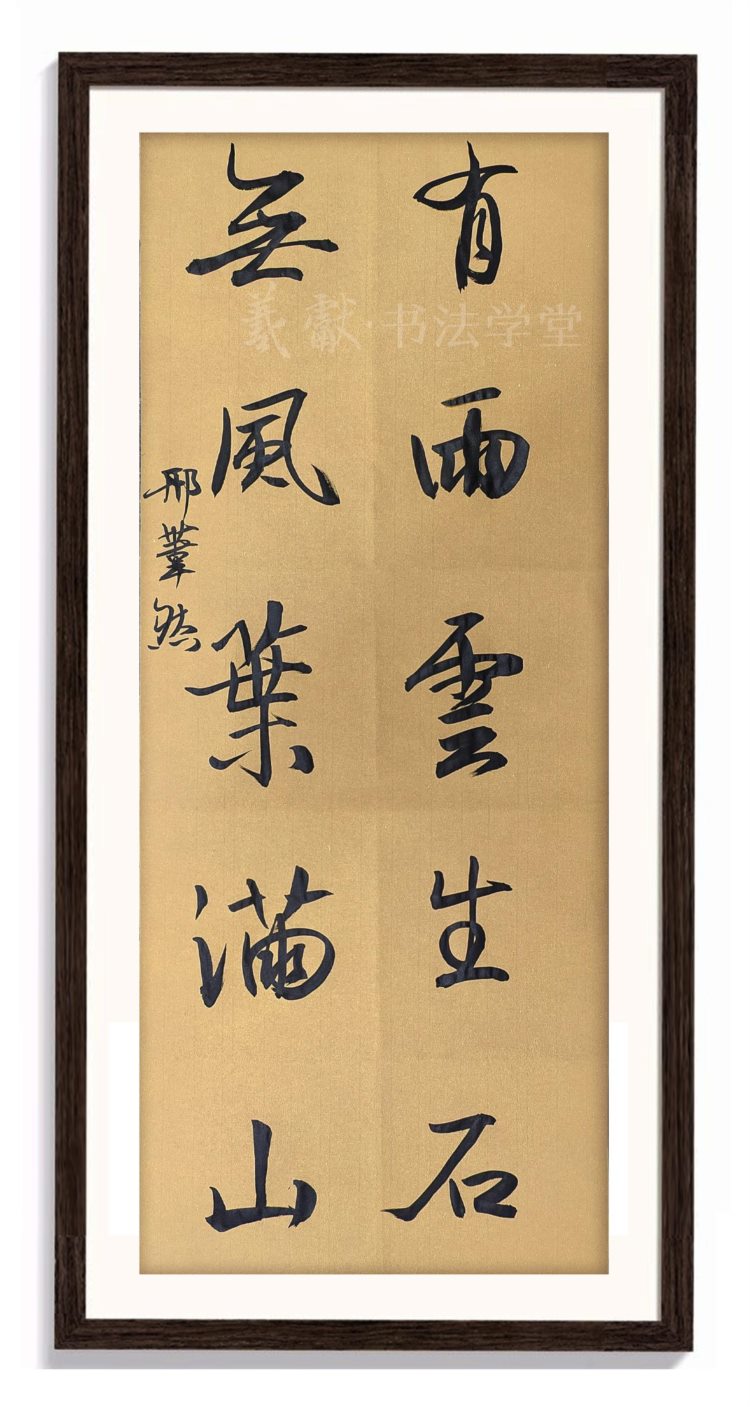 有雨雲生石
無風葉滿山
邢葦然
羲獻·书法学堂